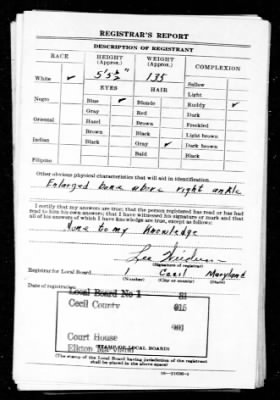 REGISTRAR'S REPORT
DESCRIPTION OF REGISTRANT
RACE HEIGHT (Approx.) WEIGHT (Approx.) COMPLEXION
White ✓ 5'5½" 135 Sallow
EYES HAIR Light
Negro Blue ✓ Blonde Ruddy ✓
Gray Red Dark
Oriental Hazel Brown Freckled
Brown Black Light brown
Indian Black Gray ✓ Dark brown
Bald Black
Filipino
Other obvious physical characteristics that will aid in identification
Enlarged bone above right ankle
I certify that my answers are true; that the person registered has read or has had
read to him his own answers; that I have witnessed his signature or mark and that
all of his answers of which I have knowledge are true, except as follows:
None to my knowledge
Lee
(Signature of registrar)
Registrar for Local Board 1 Cecil Maryland
(Number) (City or county) (State)
Date of registration
Local Board No 1 81
Cecil County 015
001
Court House
Elkton Maryland
(STAMP OF LOCAL BOARD)
(The stamp of the Local Board having jurisdiction of the registrant
shall be placed in the above space)